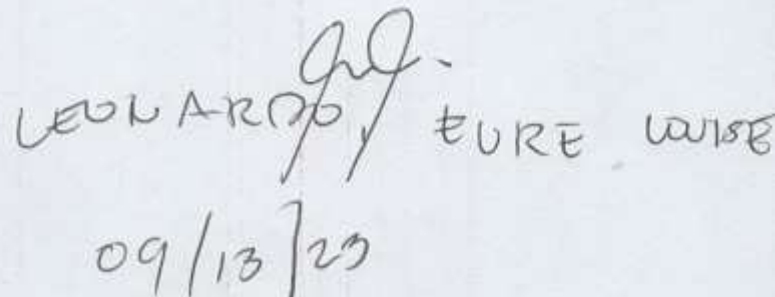 LEONARDO, EURE LOUISE
09/13/23